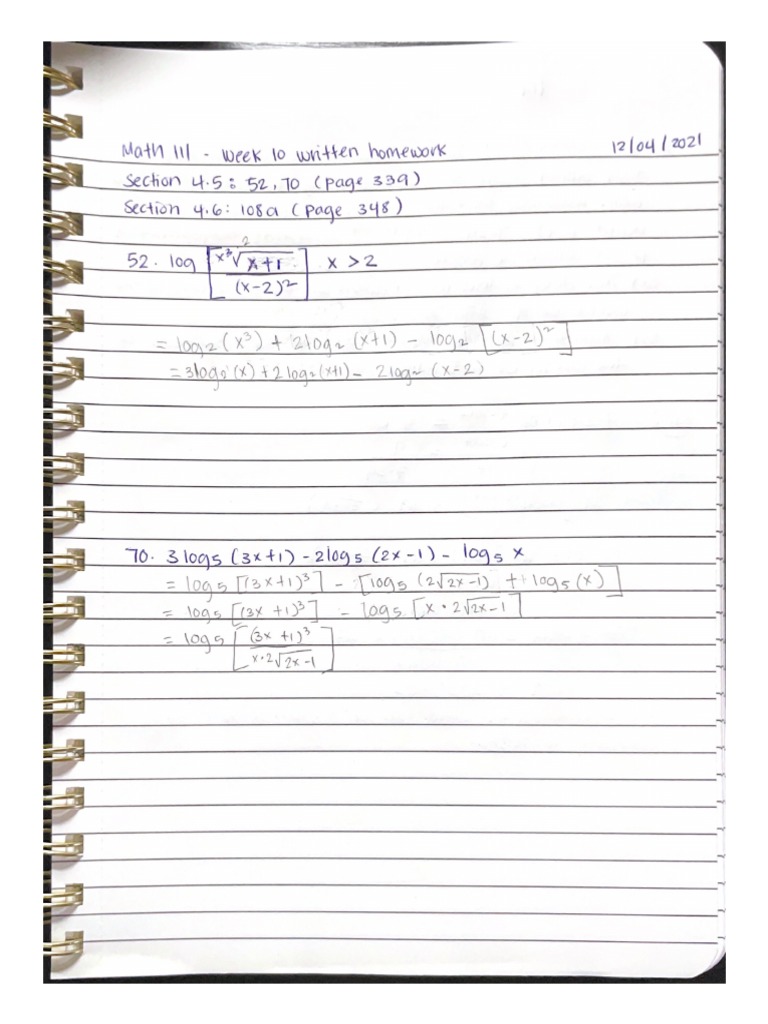 Math 111 - Week 10 written homework 12/04/2021
Section 4.5: 52, 70 (page 339)
Section 4.6: 108a (page 348)
2
52. log [x³√x+1 / (x-2)²] x > 2
= log₂(x³) + 2log₂(x+1) - log₂[(x-2)²]
= 3log₂(x) + 2log₂(x+1) - 2log₂(x-2)
70. 3log₅(3x+1) - 2log₅(2x-1) - log₅ x
= log₅[(3x+1)³] - [log₅(2√2x-1) + log₅(x)]
= log₅[(3x+1)³] - log₅[x·2√2x-1]
= log₅[(3x+1)³ / x·2√2x-1]